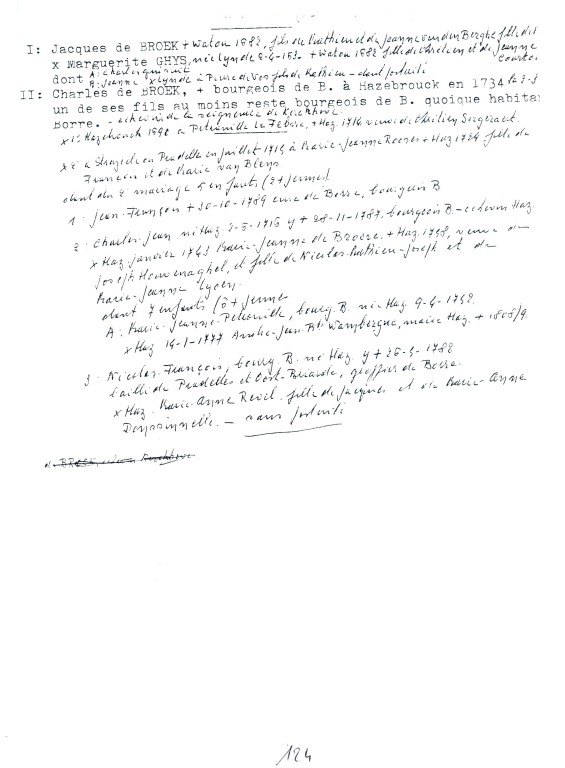 I: Jacques de BROEK + Watou 1682, fils de Mathieu et de Jeanne van den Berghe fille de
x Marguerite GHYS, née Eynde 8-4-163. + Watou 1682 fille de Chrétien et de Jeanne
Courtois
dont A: Charles qui suit
B: Jeanne x Eynde à Pierre de Vos fils de Mathieu - dont postérité
II: Charles de BROEK, + bourgeois de B. à Hazebrouck en 1734
un de ses fils au moins reste bourgeois de B. quoique habita
Borre. - échevin de la seigneurie de Kerckhove
x 1° Hazebrouck 1690 à Pétronille Le Febvre, + Haz. 1714 veuve de Chrétien
x 2° à Strazeele en Pradelle en juillet 1714 à Marie-Jeanne + Haz 1734 fille de
François et de Marie van
dont du 2° mariage 5 enfants (2 + jeunes)
1: Jean-François + 30-10-1789 curé de Borre, bourgeois B
2: Charles-Jean né Haz. 2-5-1716 y + 28-11-1787, bourgeois B. - échevin Haz.
x Haz janvier 1743 Marie-Jeanne de Broere. + Haz. 1798, veuve de
Joseph Houvenaghel, et fille de Nicolas-Mathieu-Joseph et de
Marie-Jeanne
dont 7 enfants (6 + jeunes
A: Marie-Jeanne-Pétronille, bourg. B. née Haz 9-4-1752.
x Haz 14-1-1777 André-Jean-Bte Wambergue, maire Haz. + 1808/9.
3: Nicolas-François, bourg. B. né Haz. y + 26-3-1782
bailli de Pradelles et Oost-, greffier de Borre.
x Haz. Marie-Anne Revel. fille de Jacques et de Marie-Anne
- sans postérité
de BROEK
124